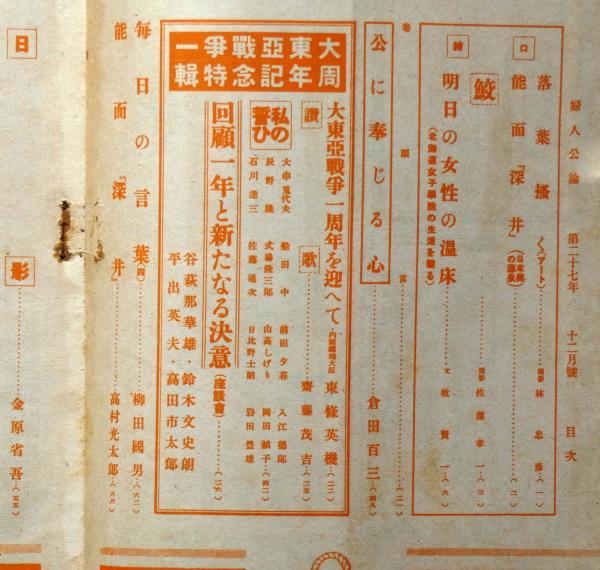 婦人公論 第二十七年 十二月號 目次
口
落葉搔く(アート)……撮影 林忠彦…(一)
能面「深井」(日本美の源泉)……(二)
繪
鮫……撮影 佐藤孝一…(三)
明日の女性の温床……文 牧賢一…(六)
(北海道女子學院の生活を觀る)
卷頭言……(二一)
公に奉じる心……倉田百三…(四八)
大東亞戰爭一周年記念特輯
大東亞戰爭一周年を迎へて…內閣總理大臣 東條英機…(二二)
讚歌……齋藤茂吉…(二五)
私の誓ひ
大串兎代夫 船田中 前田夕暮 入江德郎
辰野隆 式場隆三郎 山高しげり 岡田禎子…(四二)
石川達三 佐藤通次 日比野士朗 岩田豊雄
回顧一年と新たなる決意(座談會)……(二六)
谷萩那華雄・鈴木文史朗
平出英夫・高田市太郎
每日の言葉(四)……柳田國男…(六二)
能面「深井」……高村光太郎…(六六)
日
影……金原省吾…(五五)